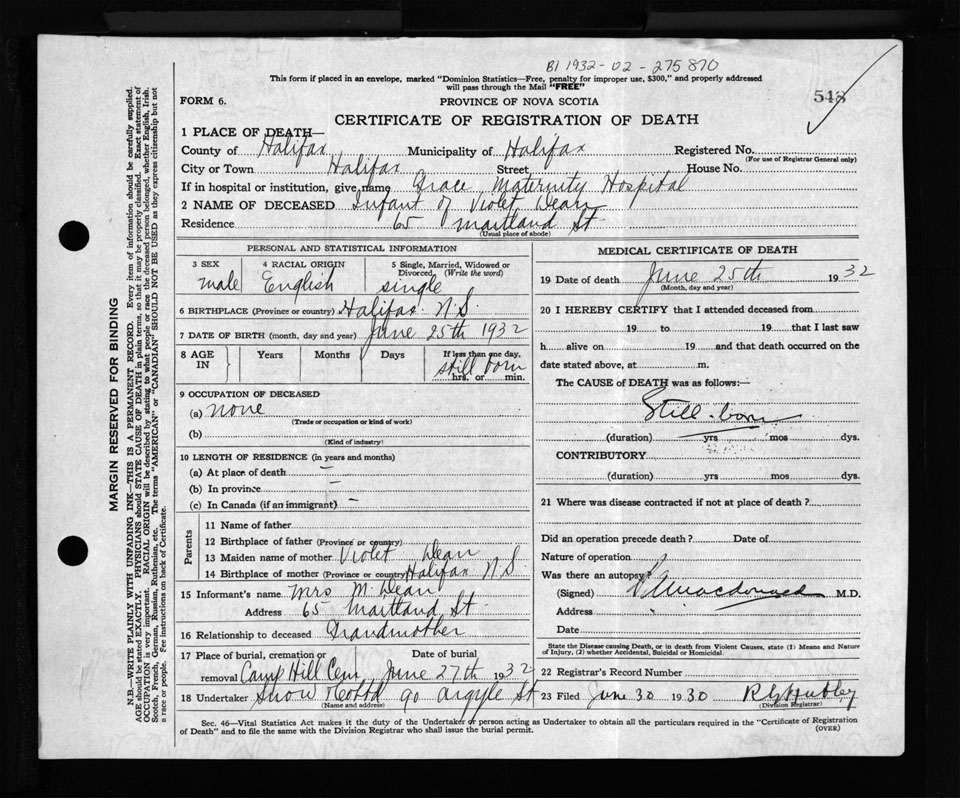 B1 1932-02-275870
This form if placed in an envelope, marked "Dominion Statistics—Free, penalty for improper use, $300," and properly addressed
will pass through the Mail "FREE"
548
FORM 6.
PROVINCE OF NOVA SCOTIA
CERTIFICATE OF REGISTRATION OF DEATH
1 PLACE OF DEATH—
County of Halifax Municipality of Halifax Registered No.
(For use of Registrar General only)
City or Town Halifax Street House No.
If in hospital or institution, give name Grace Maternity Hospital
2 NAME OF DECEASED Infant of Violet Dean
Residence 65 Maitland St
(Usual place of abode)
PERSONAL AND STATISTICAL INFORMATION
3 SEX 4 RACIAL ORIGIN 5 Single, Married, Widowed or
Divorced. (Write the word)
male English single
6 BIRTHPLACE (Province or country) Halifax N.S.
7 DATE OF BIRTH (month, day and year) June 25th 1932
8 AGE IN Years Months Days If less than one day,
still born
hrs. or min.
9 OCCUPATION OF DECEASED
(a) none
(Trade or occupation or kind of work)
(b)
(Kind of industry)
10 LENGTH OF RESIDENCE (in years and months)
(a) At place of death —
(b) In province —
(c) In Canada (if an immigrant) —
Parents
11 Name of father
12 Birthplace of father (Province or country)
13 Maiden name of mother Violet Dean
14 Birthplace of mother (Province or country) Halifax N.S.
15 Informant's name Mrs M. Dean
Address 65 Maitland St.
16 Relationship to deceased Grandmother
17 Place of burial, cremation or Date of burial
removal Camp Hill Cem June 27th 1932
18 Undertaker Snow & Co Ltd 90 Argyle St
(Name and address)
MEDICAL CERTIFICATE OF DEATH
19 Date of death June 25th 1932
(Month, day and year)
20 I HEREBY CERTIFY that I attended deceased from
19 to 19 that I last saw
h alive on 19 and that death occurred on the
date stated above, at m.
The CAUSE of DEATH was as follows:—
Still-born
(duration) yrs mos dys.
CONTRIBUTORY
(duration) yrs mos dys.
21 Where was disease contracted if not at place of death?
Did an operation precede death? Date of
Nature of operation
Was there an autopsy?
(Signed) Macdonald M.D.
Address
Date
State the Disease causing Death, or in death from Violent Causes, state (1) Means and Nature
of Injury, (2) whether Accidental, Suicidal or Homicidal.
22 Registrar's Record Number
23 Filed June 30 1930 R G Hubley
(Division Registrar)
Sec. 46—Vital Statistics Act makes it the duty of the Undertaker or person acting as Undertaker to obtain all the particulars required in the "Certificate of Registration
of Death" and to file the same with the Division Registrar who shall issue the burial permit.
(OVER)
MARGIN RESERVED FOR BINDING
N.B.—WRITE PLAINLY WITH UNFADING INK—THIS IS A PERMANENT RECORD. Every item of information should be carefully supplied.
AGE should be stated EXACTLY. PHYSICIANS should STATE CAUSE OF DEATH in plain terms, so that it may be properly classified. Exact statement of
OCCUPATION is very important. RACIAL ORIGIN will be described by stating to what people or race the deceased person belonged, whether English, Irish,
Scotch, French, German, Russian, Ruthenian, etc. The terms "AMERICAN" or "CANADIAN" SHOULD NOT BE USED as they express citizenship but not
a race or people. Fee instructions on back of Certificate.